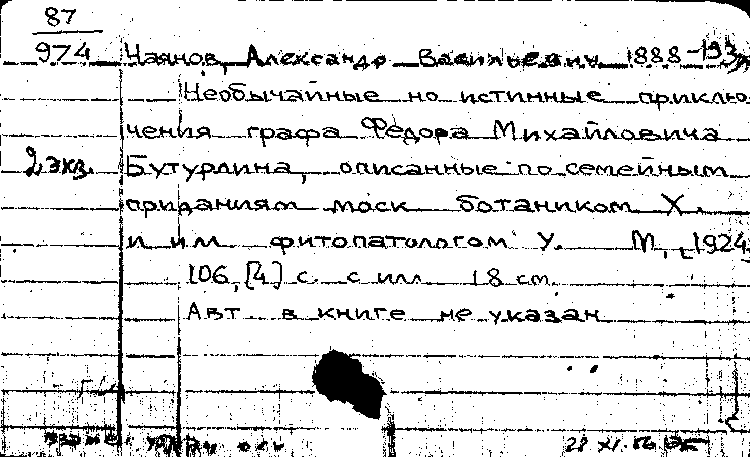 87
974
Чаянов, Александр Васильевич 1888-193
Необычайные но истинные приклю-
чения графа Федора Михайловича
2 экз. Бутурлина, описанные по семейным
приданиям моск ботаником X.
и им фитопатологом У. М., 1924
106, [4] с. с илл. 18 см.
Авт. в книге не указан
28 XI.